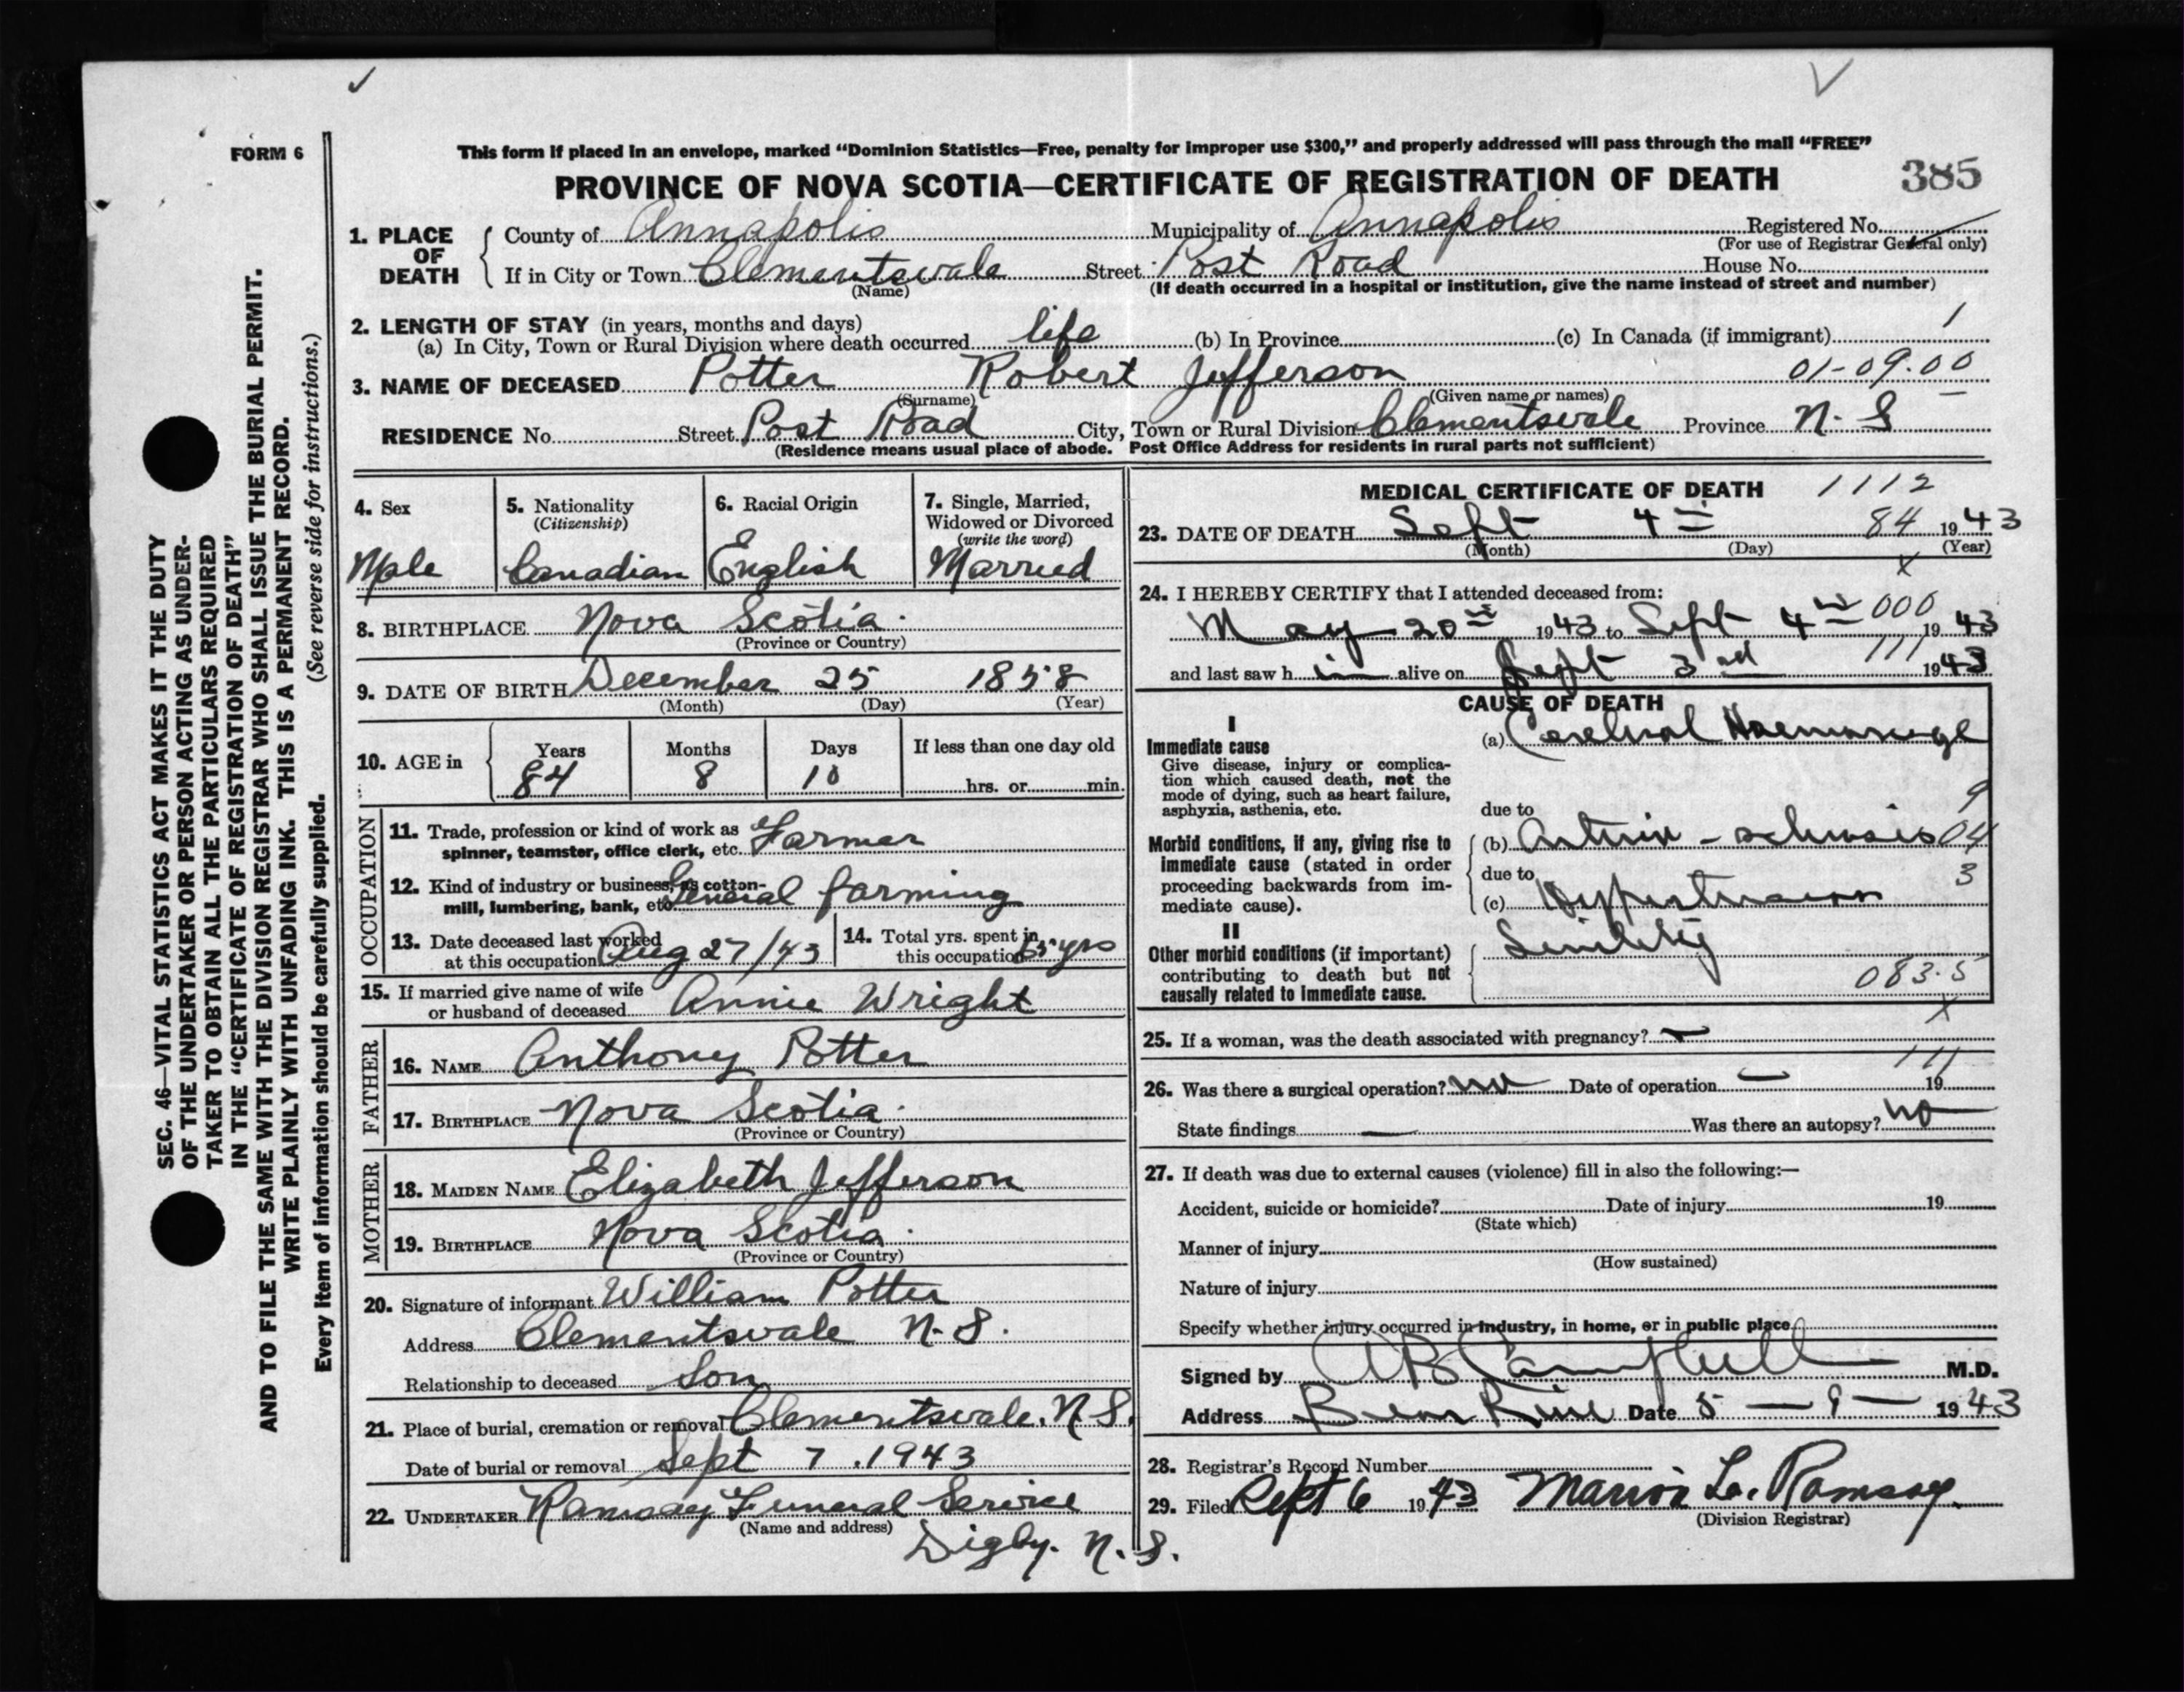 FORM 6
This form if placed in an envelope, marked “Dominion Statistics—Free, penalty for improper use $300,” and properly addressed will pass through the mail “FREE”
PROVINCE OF NOVA SCOTIA—CERTIFICATE OF REGISTRATION OF DEATH 385
1. PLACE OF DEATH County of Annapolis Municipality of Annapolis Registered No.
(For use of Registrar General only)
If in City or Town Clementsvale Street Post Road House No.
(Name) (If death occurred in a hospital or institution, give the name instead of street and number)
2. LENGTH OF STAY (in years, months and days)
(a) In City, Town or Rural Division where death occurred life (b) In Province (c) In Canada (if immigrant) 1
3. NAME OF DECEASED Potter Robert Jefferson 01-09.00
(Surname) (Given name or names)
RESIDENCE No. Street Post Road City, Town or Rural Division Clementsvale Province N. S
(Residence means usual place of abode. Post Office Address for residents in rural parts not sufficient)
4. Sex
Male
5. Nationality
(Citizenship)
Canadian
6. Racial Origin
English
7. Single, Married,
Widowed or Divorced
(write the word)
Married
8. BIRTHPLACE Nova Scotia.
(Province or Country)
9. DATE OF BIRTH December 25 1858
(Month) (Day) (Year)
10. AGE in Years Months Days If less than one day old
84 8 10 hrs. or min.
OCCUPATION
11. Trade, profession or kind of work as
spinner, teamster, office clerk, etc. Farmer
12. Kind of industry or business, as cotton-
mill, lumbering, bank, etc. General farming
13. Date deceased last worked
at this occupation Aug 27/43
14. Total yrs. spent in
this occupation yrs
15. If married give name of wife
or husband of deceased Annie Wright
FATHER
16. NAME Anthony Potter
17. BIRTHPLACE Nova Scotia.
(Province or Country)
MOTHER
18. MAIDEN NAME Elizabeth Jefferson
19. BIRTHPLACE Nova Scotia.
(Province or Country)
20. Signature of informant William Potter
Address Clementsvale N. S.
Relationship to deceased Son
21. Place of burial, cremation or removal Clementsvale. N S.
Date of burial or removal Sept 7 . 1943
22. UNDERTAKER Ramsay Funeral Service
(Name and address)
Digby. N. S.
MEDICAL CERTIFICATE OF DEATH 1112
23. DATE OF DEATH Sept 4th 84 1943
(Month) (Day) (Year)
x
24. I HEREBY CERTIFY that I attended deceased from:
000
May 20th 1943 to Sept 4th 1943
111
and last saw him alive on Sept 3rd 1943
CAUSE OF DEATH
I
Immediate cause
Give disease, injury or complica-
tion which caused death, not the
mode of dying, such as heart failure,
asphyxia, asthenia, etc.
(a) Cerebral Haemorrage
due to 9
Morbid conditions, if any, giving rise to
immediate cause (stated in order
proceeding backwards from im-
mediate cause).
(b) Arterio - sclerosis 04
due to 3
(c) Hypertension
II
Other morbid conditions (if important)
contributing to death but not
causally related to immediate cause.
Senility
083.5
x
25. If a woman, was the death associated with pregnancy?
111
26. Was there a surgical operation? no Date of operation — 19
State findings — Was there an autopsy? no
27. If death was due to external causes (violence) fill in also the following:—
Accident, suicide or homicide? Date of injury 19
(State which)
Manner of injury
(How sustained)
Nature of injury
Specify whether injury occurred in industry, in home, or in public place
Signed by A B Campbell M.D.
Address Bear River Date 5 — 9 — 1943
28. Registrar's Record Number
29. Filed Sept 6 1943 Marion L. Ramsay.
(Division Registrar)
SEC. 46—VITAL STATISTICS ACT MAKES IT THE DUTY
OF THE UNDERTAKER OR PERSON ACTING AS UNDER-
TAKER TO OBTAIN ALL THE PARTICULARS REQUIRED
IN THE “CERTIFICATE OF REGISTRATION OF DEATH”
AND TO FILE THE SAME WITH THE DIVISION REGISTRAR WHO SHALL ISSUE THE BURIAL PERMIT.
WRITE PLAINLY WITH UNFADING INK. THIS IS A PERMANENT RECORD.
Every item of information should be carefully supplied. (See reverse side for instructions.)